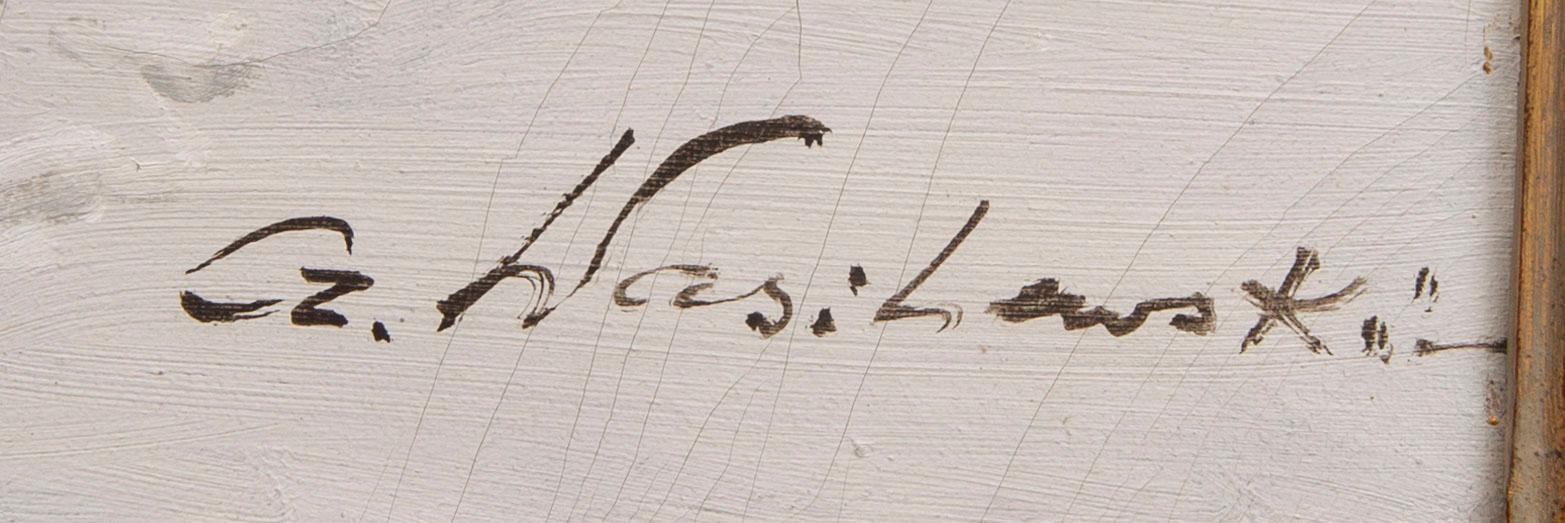 Cz. Wasilewski